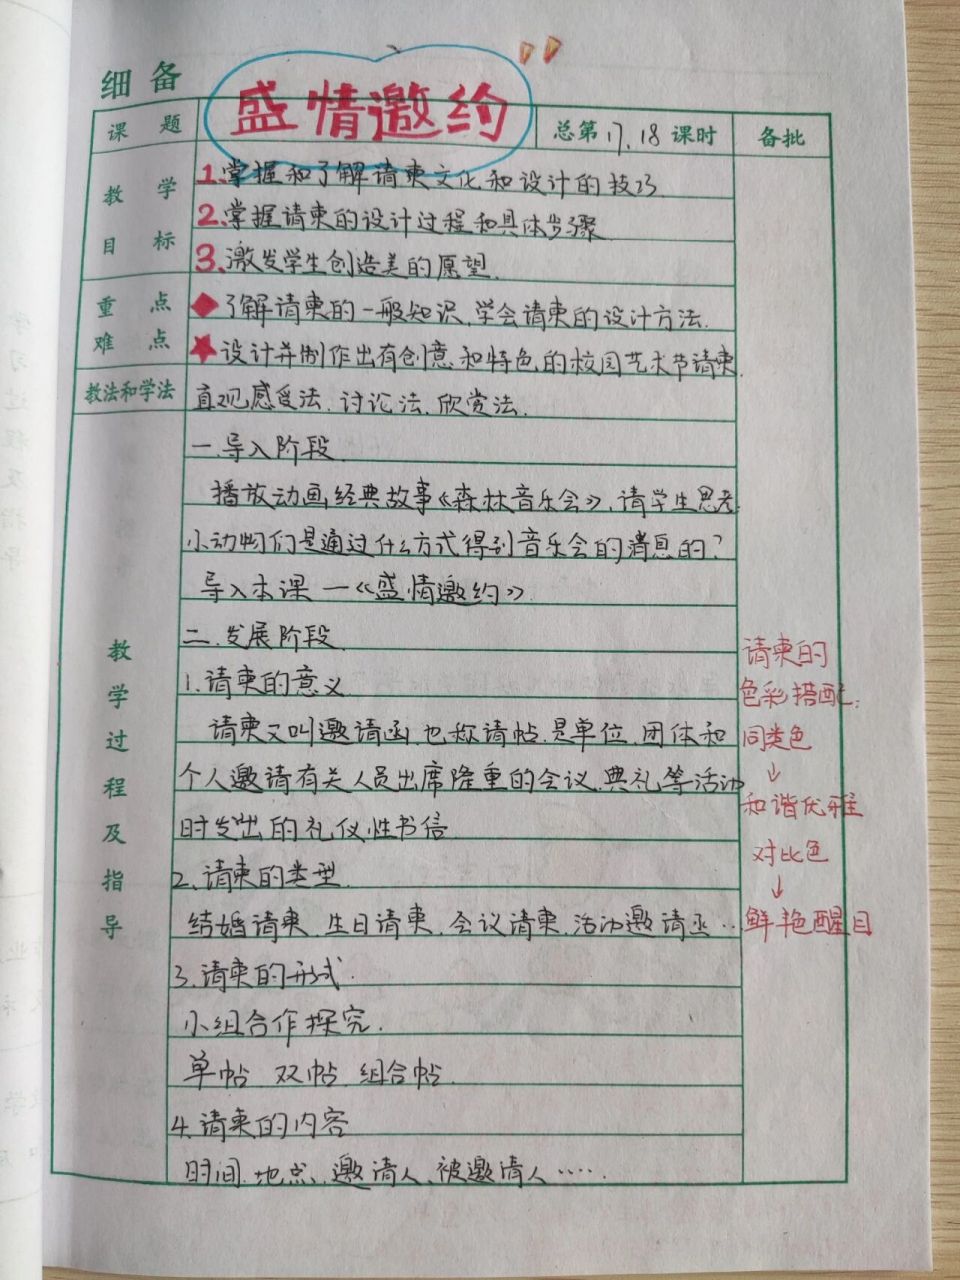 细备
盛情邀约
课题
总第17、18课时
备批
教学目标
1.掌握和了解请柬文化和设计的技巧
2.掌握请柬的设计过程和具体步骤
3.激发学生创造美的愿望.
重点
难点
◆了解请柬的一般知识,学会请柬的设计方法.
★设计并制作出有创意和特色的校园艺术节请柬.
教法和学法
直观感受法.讨论法.欣赏法.
教学过程及指导
一.导入阶段.
播放动画经典故事《森林音乐会》,请学生思考.
小动物们是通过什么方式得到音乐会的消息的?
导入本课—《盛情邀约》.
二.发展阶段.
1.请柬的意义.
请柬又叫邀请函.也称请帖.是单位.团体和
个人邀请有关人员出席隆重的会议.典礼等活动
时发出的礼仪性书信
2.请柬的类型.
结婚请柬.生日请柬.会议请柬.活动邀请函…
3.请柬的形式.
小组合作探究.
单帖 双帖 组合帖.
4.请柬的内容
时间.地点.邀请人、被邀请人……
请柬的
色彩搭配:
同类色
↓
和谐优雅
对比色
↓
鲜艳醒目